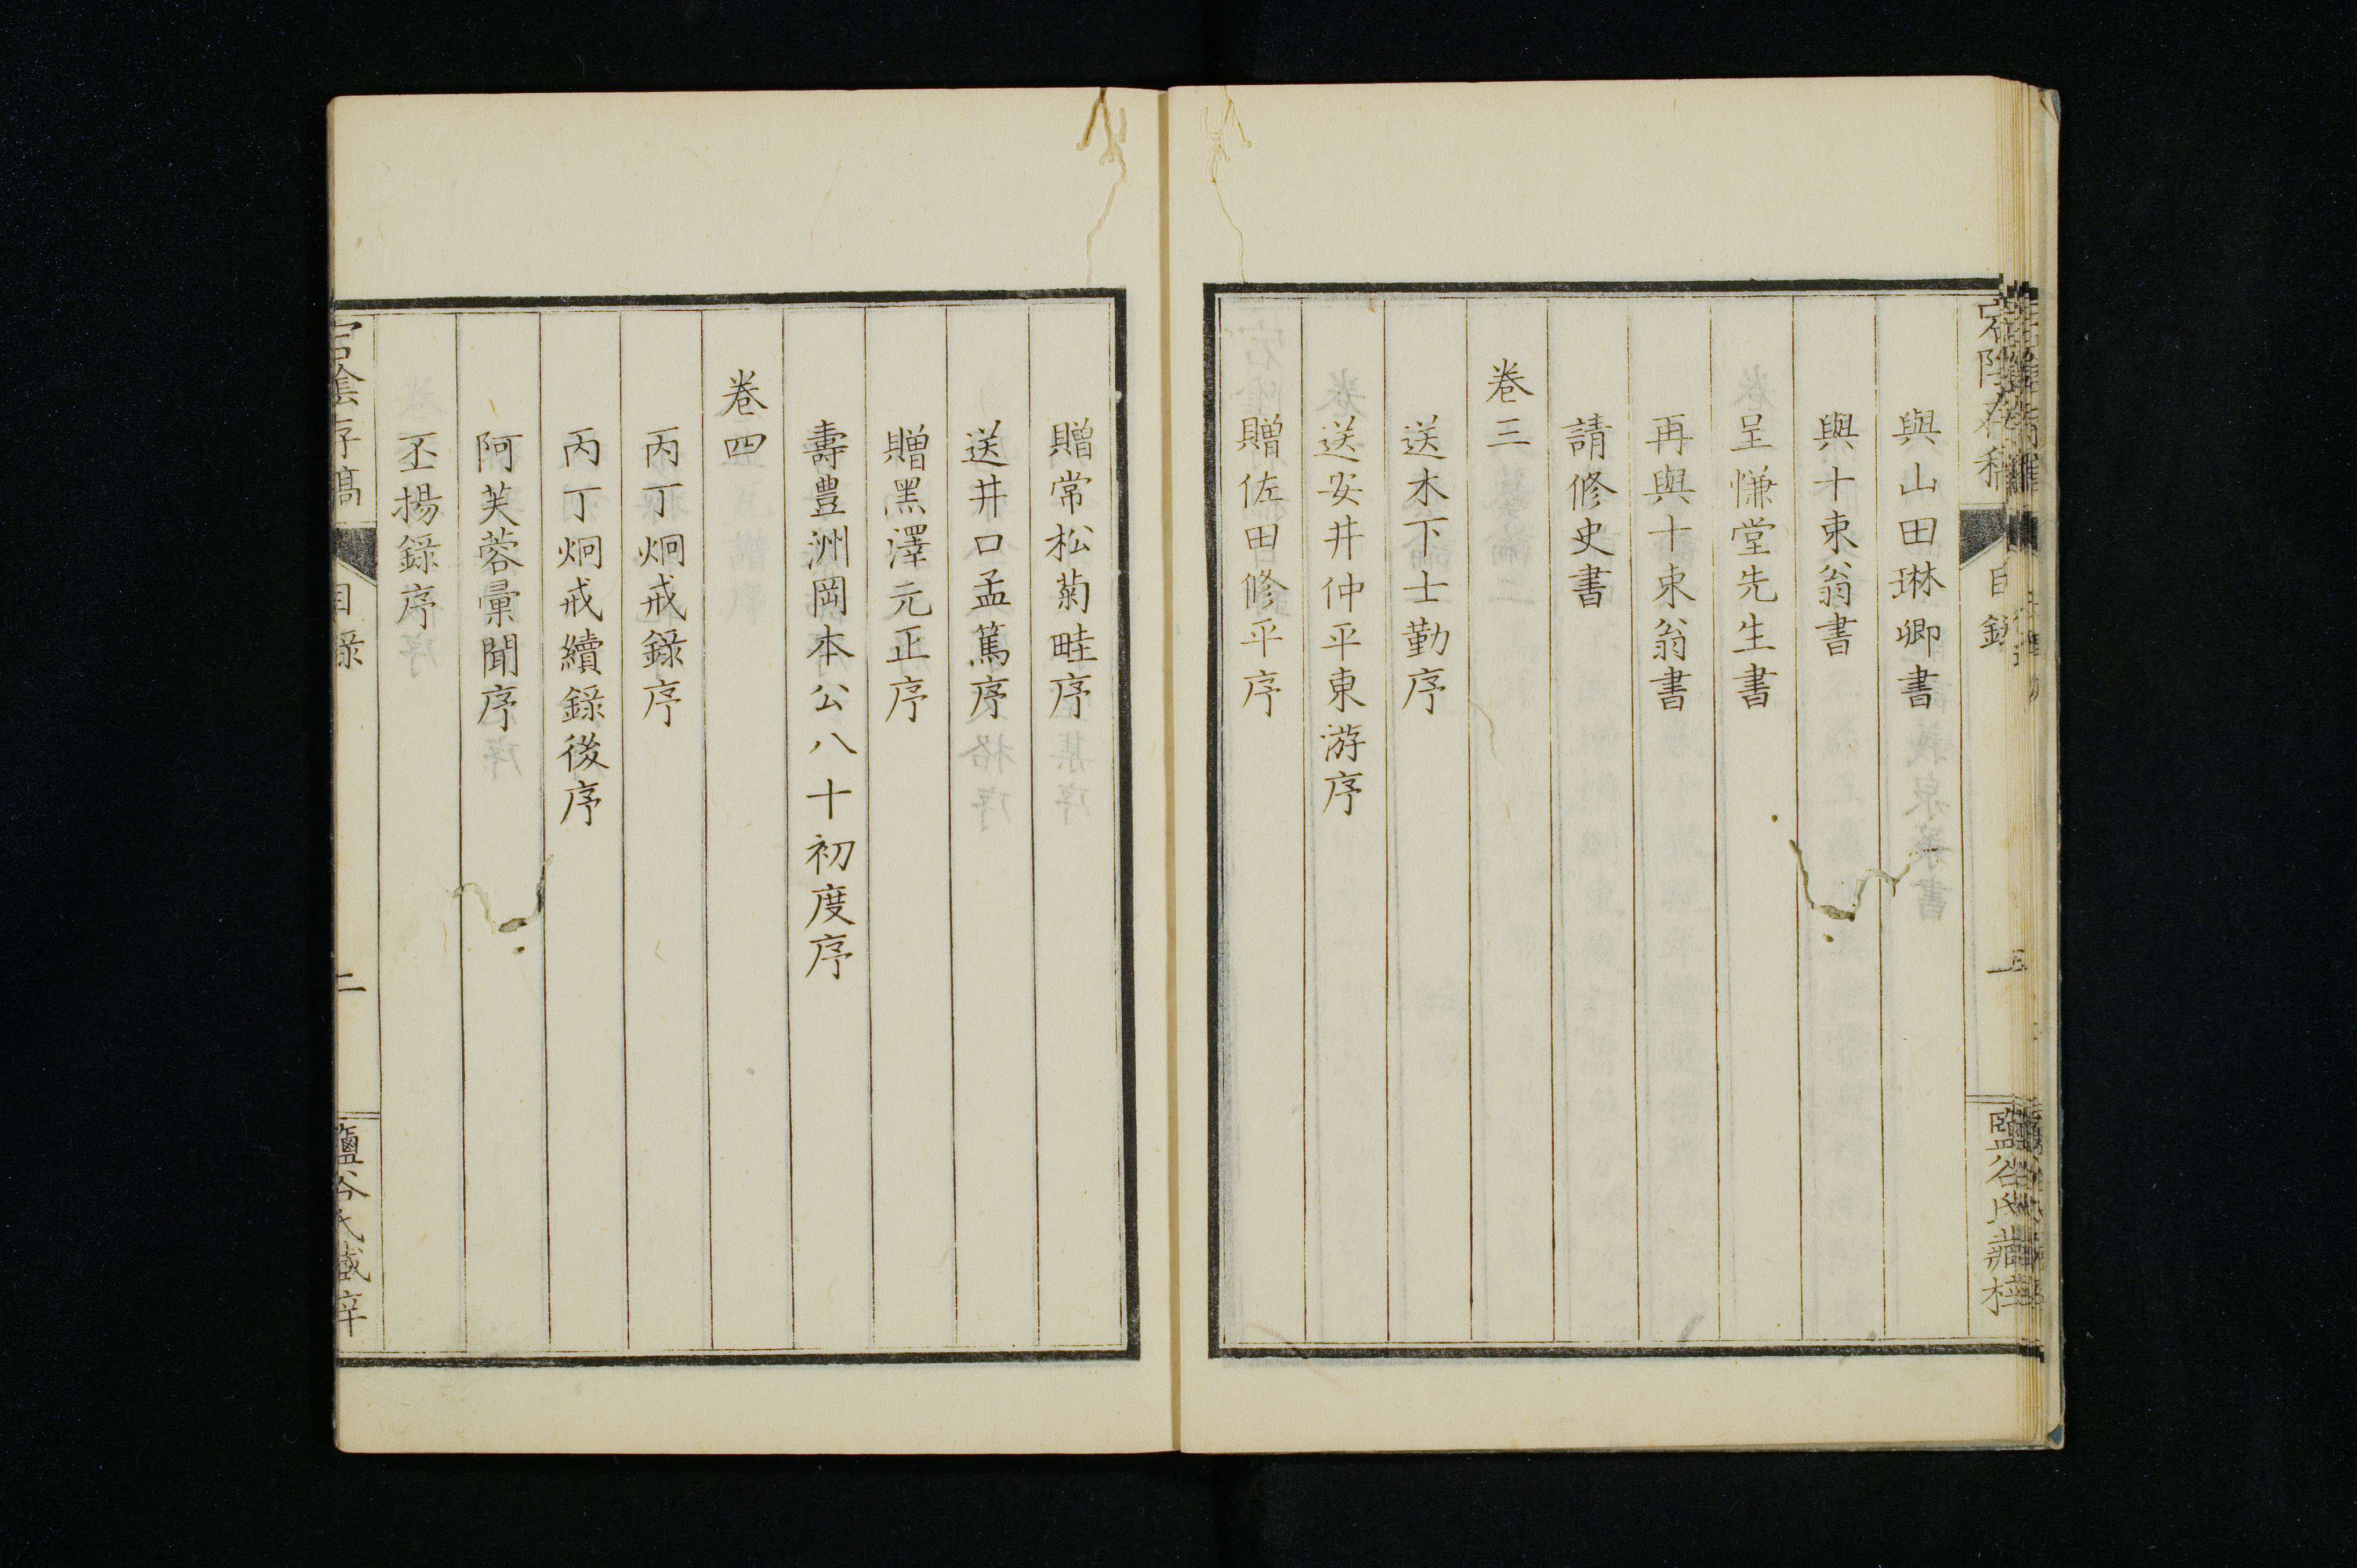 與山田琳卿書
與十東翁書
呈慊堂先生書
再與十東翁書
請修史書
卷三
送木下士勤序
送安井仲平東游序
贈佐田修平序
贈常松菊畦序
送井口孟篤序
贈黑澤元正序
壽豊洲岡本公八十初度序
卷四
丙丁炯戒錄序
丙丁炯戒續錄後序
阿芙蓉彙聞序
丕揚錄序
宕陰存稿
目錄
二
鹽谷氏藏梓